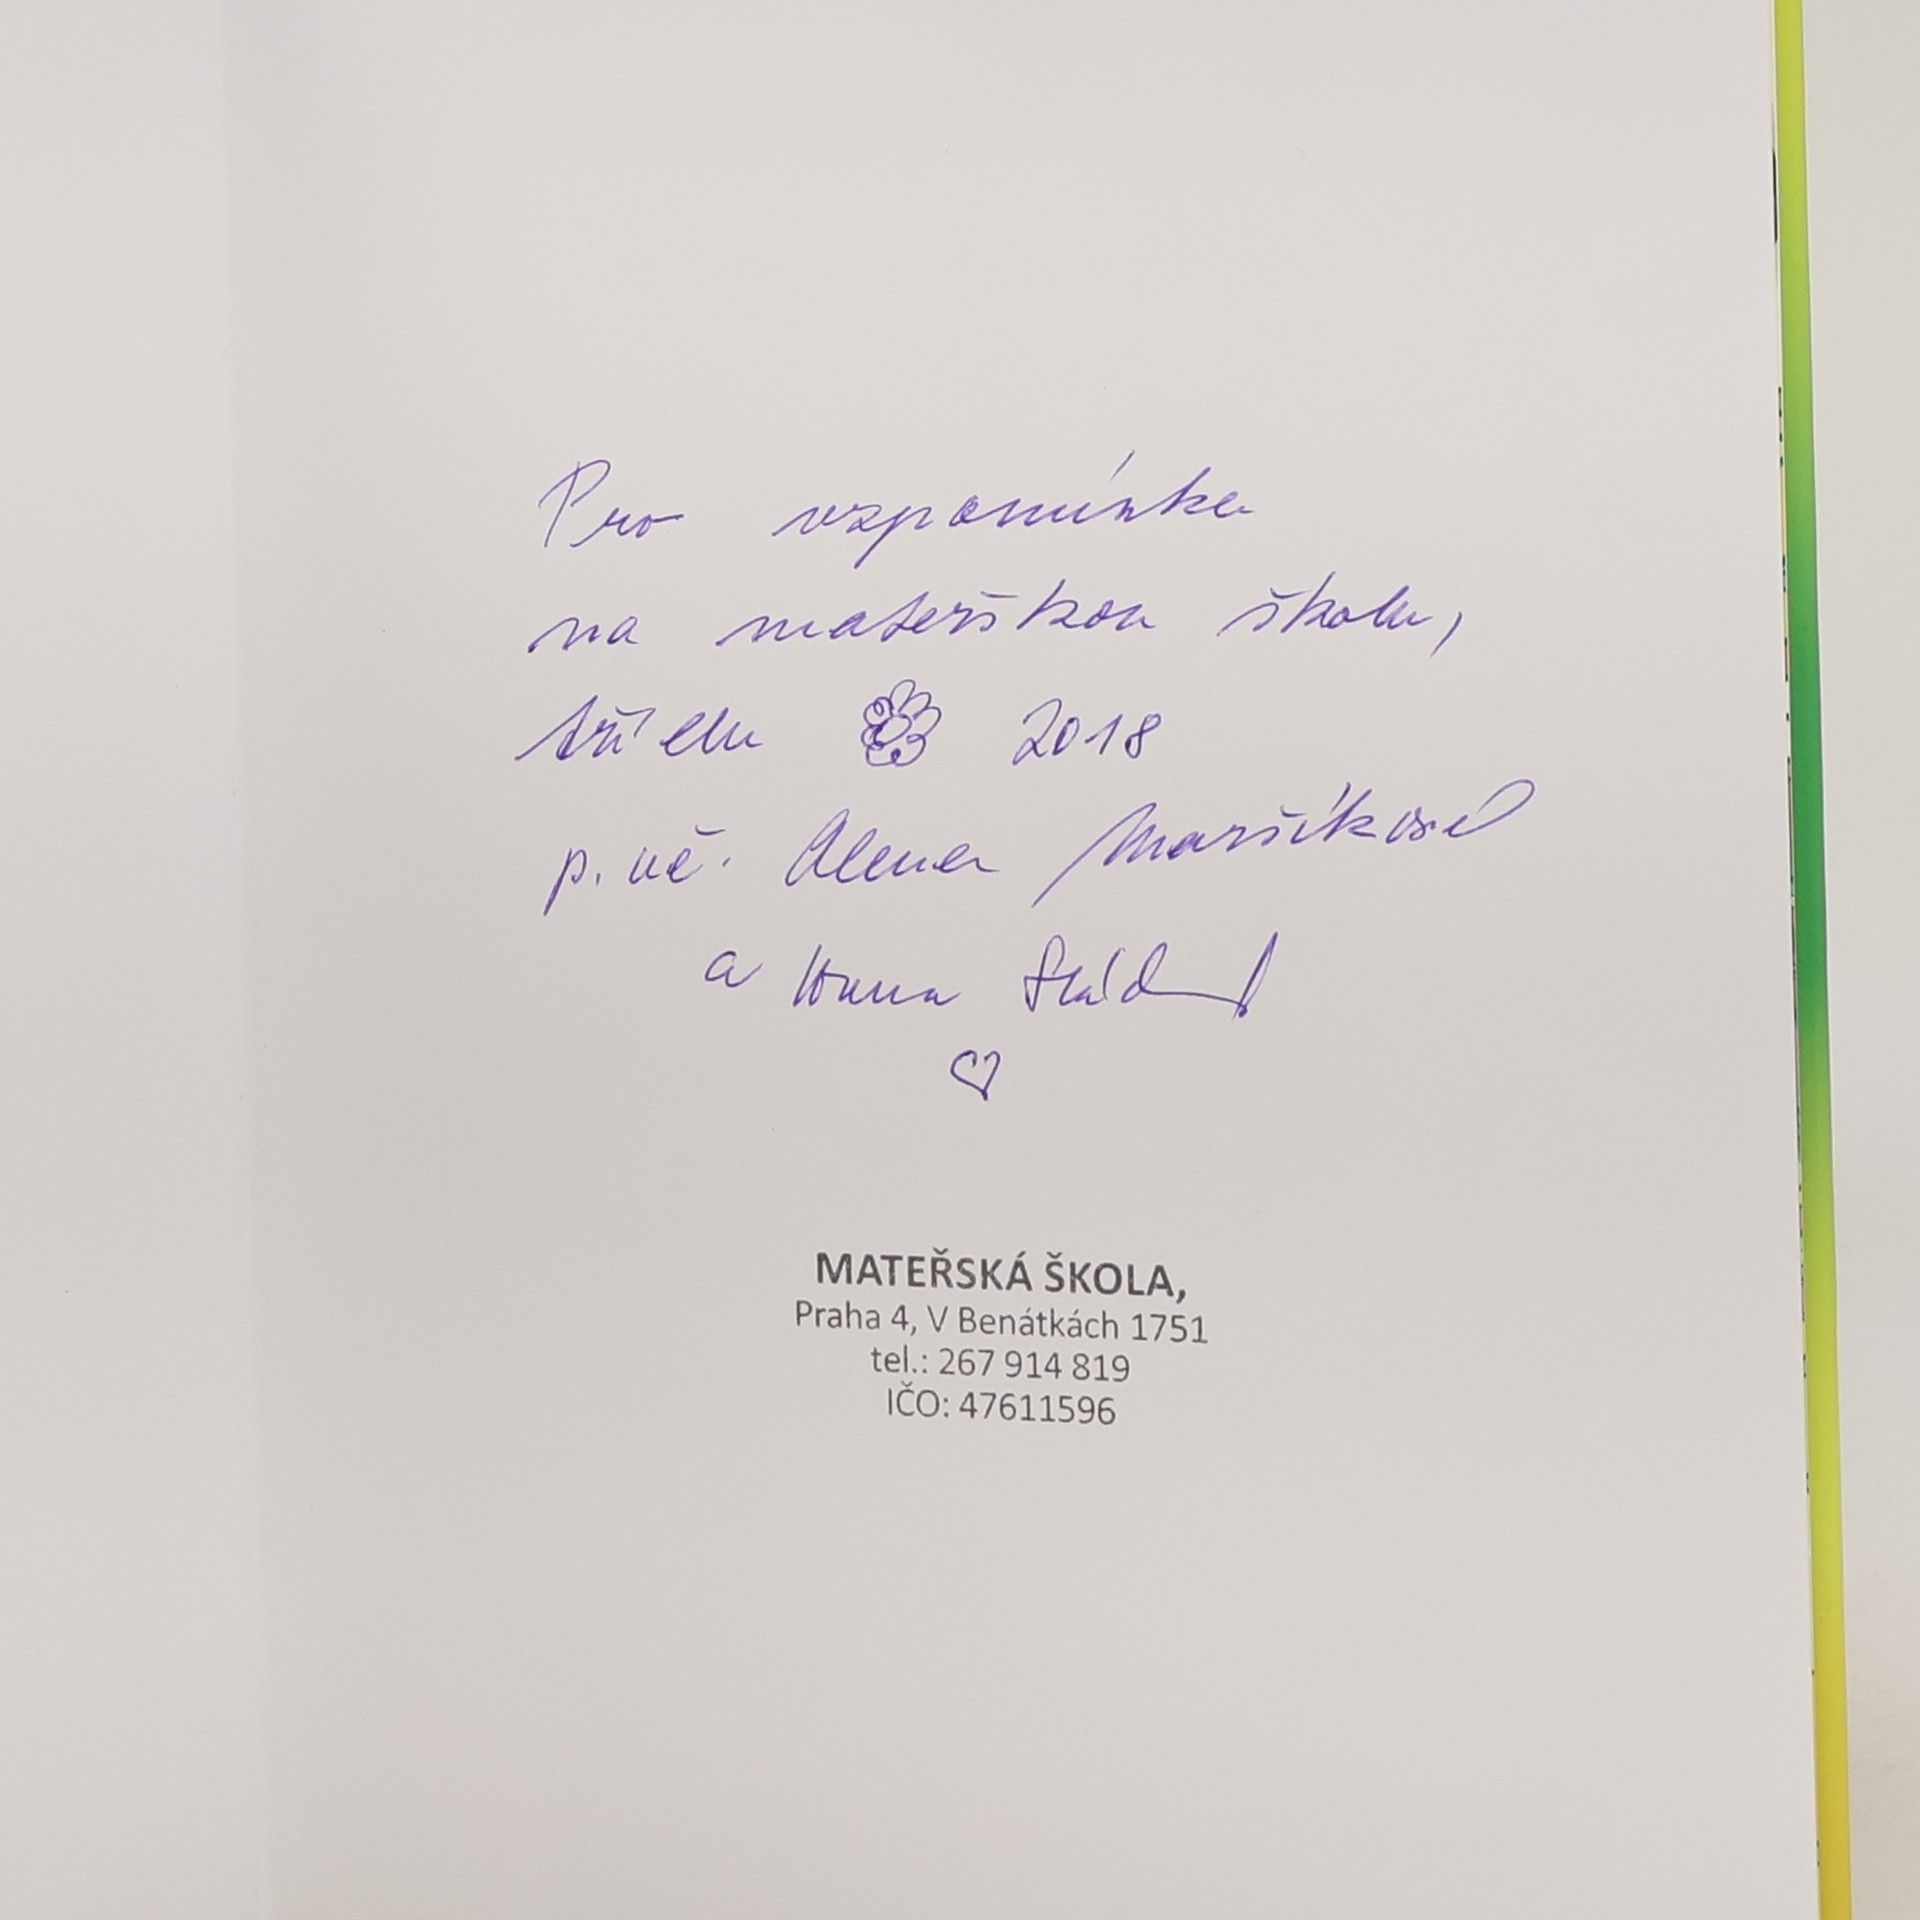 Pro vzpomínku
na mateřskou školu,
třídu 2018
p. uč. Alena Maršíková
a Hana
MATEŘSKÁ ŠKOLA,
Praha 4, V Benátkách 1751
tel.: 267 914 819
IČO: 47611596